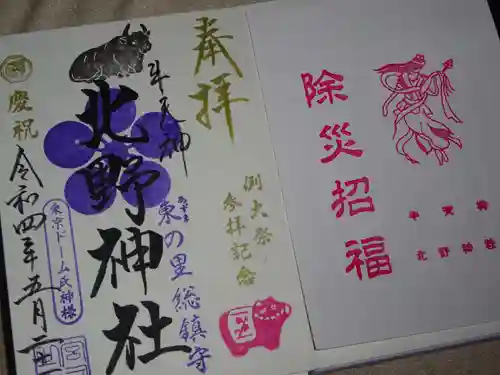 奉拝
例大祭
参拝記念
牛天神
北野神社
東の里総鎮守
東京ドーム氏神様
慶祝
令和四年五月二
除災招福
牛天神
北野神社